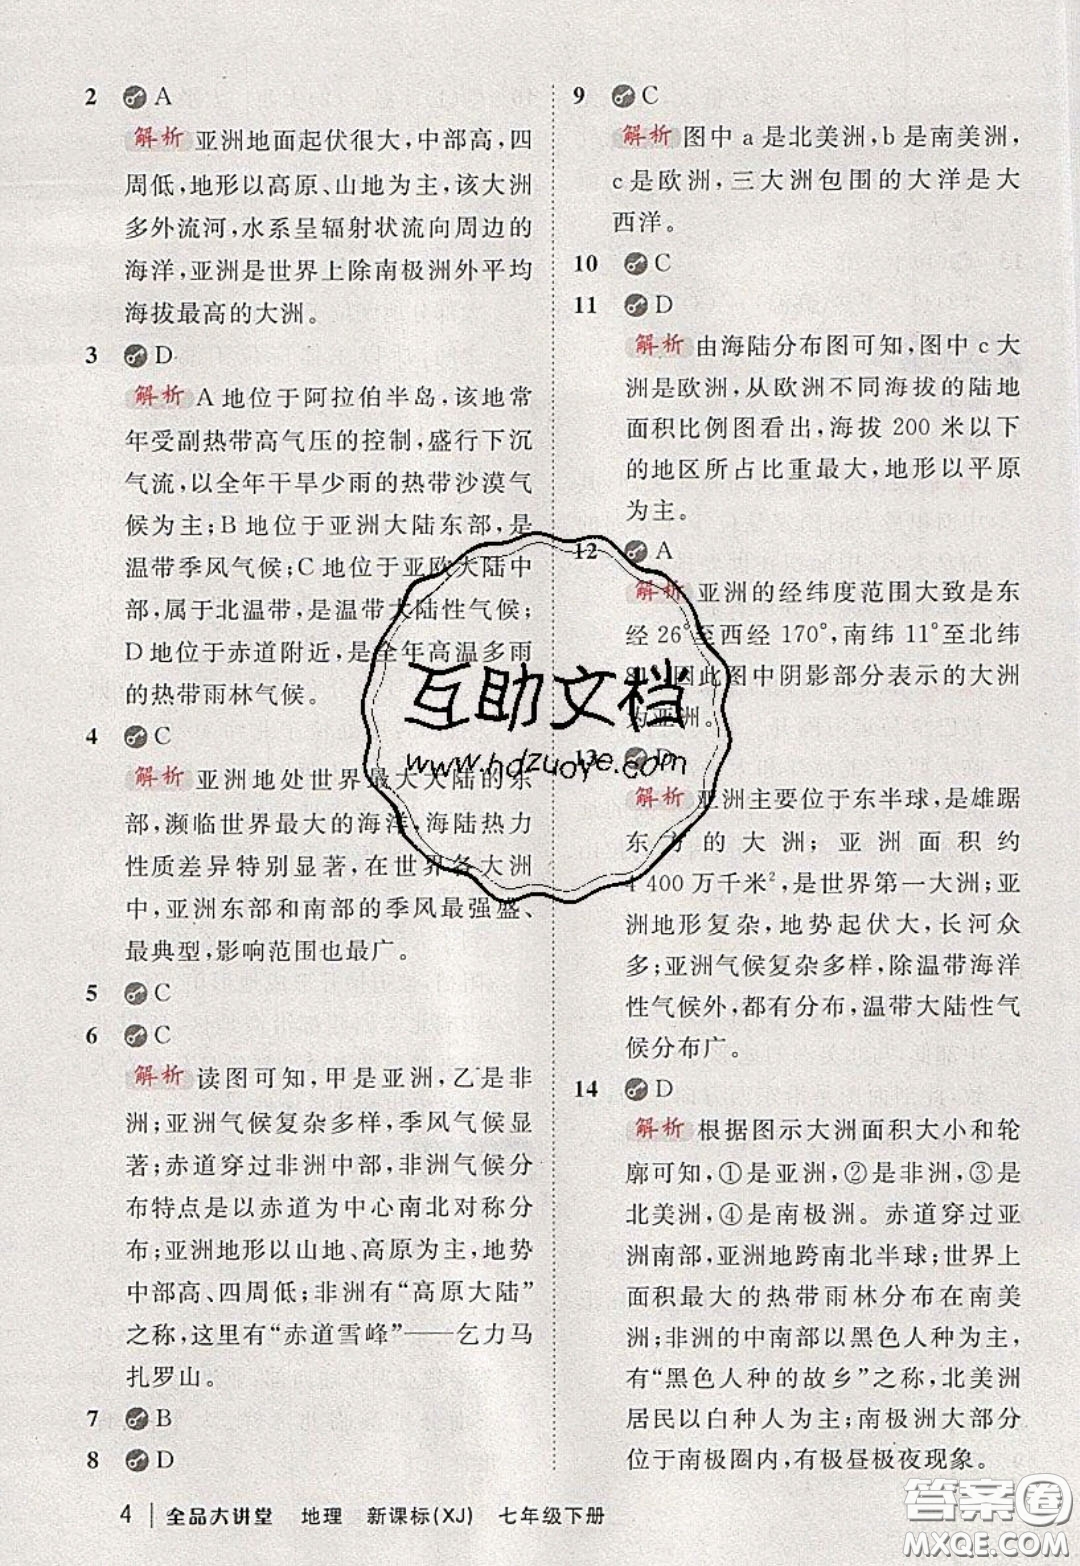 2 A
解析 亚洲地面起伏很大,中部高,四
周低,地形以高原、山地为主,该大洲
多外流河,水系呈辐射状流向周边的
海洋,亚洲是世界上除南极洲外平均
海拔最高的大洲。
3 D
解析 A地位于阿拉伯半岛,该地常
年受副热带高气压的控制,盛行下沉
气流,以全年干旱少雨的热带沙漠气
候为主;B地位于亚洲大陆东部,是
温带季风气候;C地位于亚欧大陆中
部,属于北温带,是温带大陆性气候;
D地位于赤道附近,是全年高温多雨
的热带雨林气候。
4 C
解析 亚洲地处世界最大大陆的东
部,濒临世界最大的海洋,海陆热力
性质差异特别显著,在世界各大洲
中,亚洲东部和南部的季风最强盛、
最典型,影响范围也最广。
5 C
6 C
解析 读图可知,甲是亚洲,乙是非
洲;亚洲气候复杂多样,季风气候显
著;赤道穿过非洲中部,非洲气候分
布特点是以赤道为中心南北对称分
布;亚洲地形以山地、高原为主,地势
中部高、四周低;非洲有“高原大陆”
之称,这里有“赤道雪峰”——乞力马
扎罗山。
7 B
8 D
9 C
解析 图中a是北美洲,b是南美洲,
c是欧洲,三大洲包围的大洋是大
西洋。
10 C
11 D
解析 由海陆分布图可知,图中c大
洲是欧洲,从欧洲不同海拔的陆地
面积比例图看出,海拔200米以下
的地区所占比重最大,地形以平原
为主。
12 A
解析 亚洲的经纬度范围大致是东
经26°至西经170°,南纬11°至北纬
因此图中阴影部分表示的大洲
为亚洲。
13 D
解析 亚洲主要位于东半球,是雄踞
东方的大洲;亚洲面积约
4 400万千米²,是世界第一大洲;亚
洲地形复杂,地势起伏大,长河众
多;亚洲气候复杂多样,除温带海洋
性气候外,都有分布,温带大陆性气
候分布广。
14 D
解析 根据图示大洲面积大小和轮
廓可知,①是亚洲,②是非洲,③是
北美洲,④是南极洲。赤道穿过亚
洲南部,亚洲地跨南北半球;世界上
面积最大的热带雨林分布在南美
洲;非洲的中南部以黑色人种为主,
有“黑色人种的故乡”之称,北美洲
居民以白种人为主;南极洲大部分
位于南极圈内,有极昼极夜现象。
互助文档
www.hdzuoye.com
4 全品大讲堂 地理 新课标(XJ) 七年级下册
答案圈
MXQE.COM